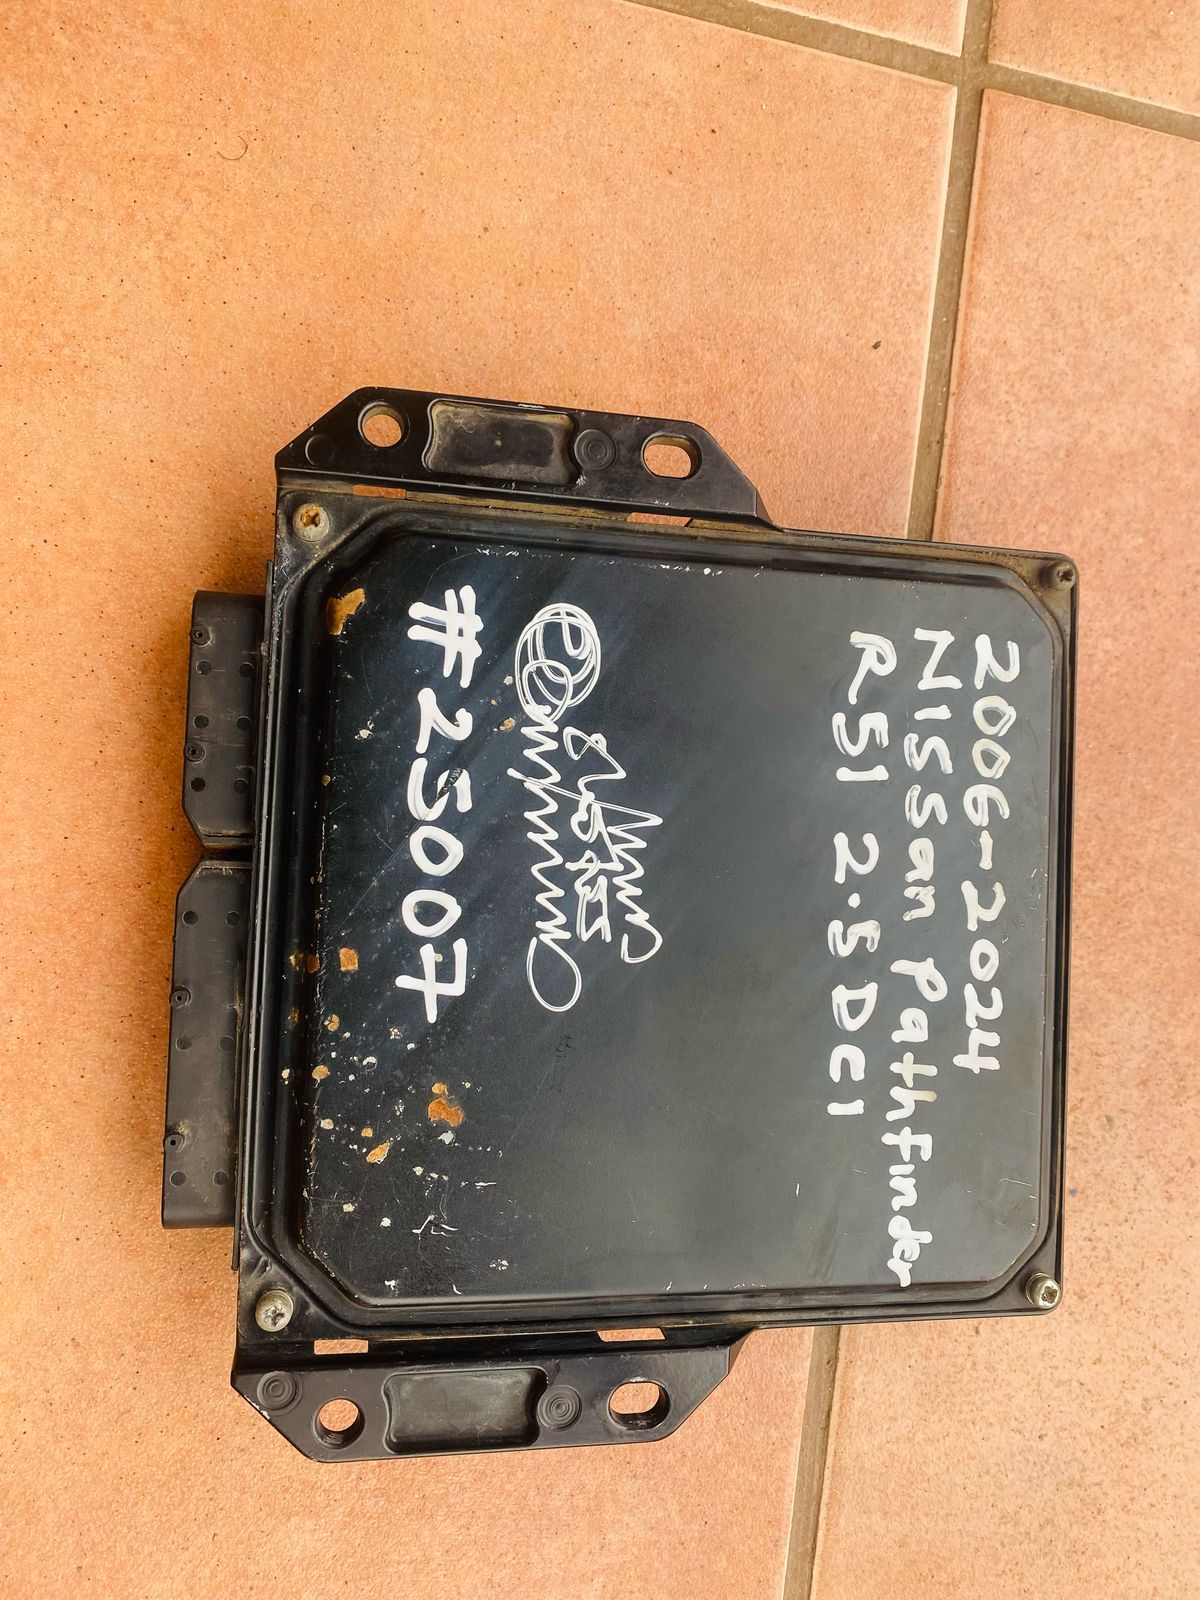 2006-2024
Nissan Pathfinder
R51 2.5 DCI
#25007